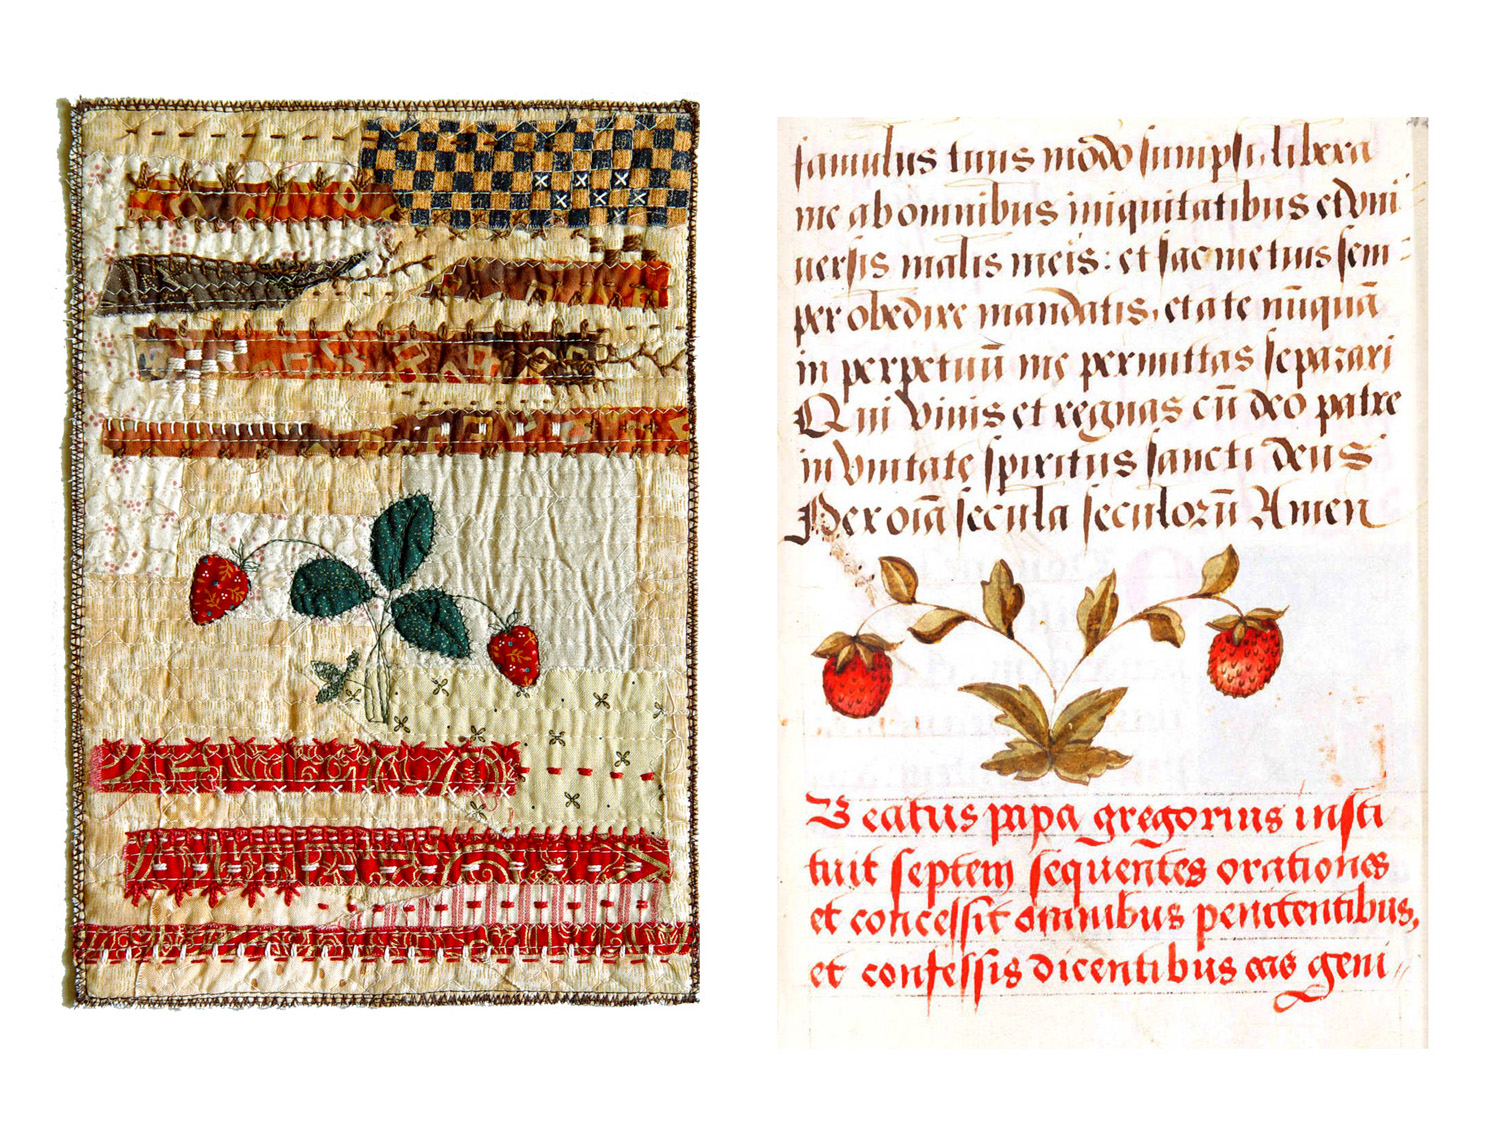 famulus tuus modo sumpsi, libera
me ab omnibus iniquitatibus et vni
uersis malis meis: et fac me tuis sem-
per obedire mandatis, et a te nūquā
in perpetuū me permittas separari
Qui viuis et regnas cū deo patre
in vnitate spiritus sancti deus
Per oīa secula seculorū Amen
Beatus papa gregorius insti
tuit septem sequentes orationes
et concessit omnibus penitentibus,
et confessis dicentibus eas geni-